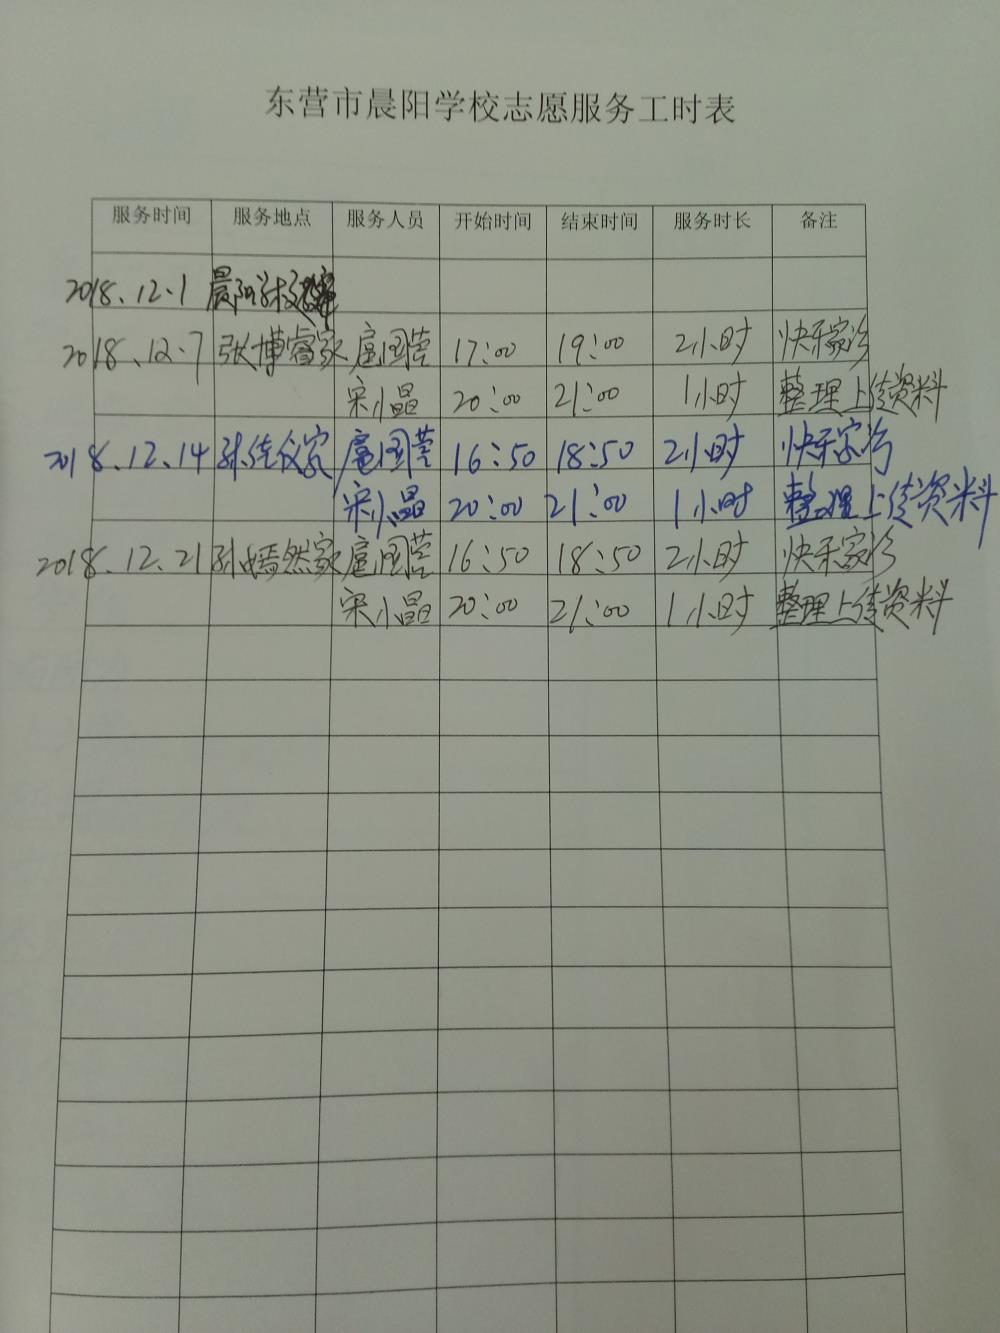 东营市晨阳学校志愿服务工时表
服务时间 服务地点 服务人员 开始时间 结束时间 服务时长 备注
2018.12.1 晨阳学校
2018.12.7 张博睿家 扈国营 17:00 19:00 2小时 快乐家访
宋小晶 20:00 21:00 1小时 整理上传资料
2018.12.14 孙佳仪家 扈国营 16:50 18:50 2小时 快乐家访
宋小晶 20:00 21:00 1小时 整理上传资料
2018.12.21 孙嫣然家 扈国营 16:50 18:50 2小时 快乐家访
宋小晶 20:00 21:00 1小时 整理上传资料